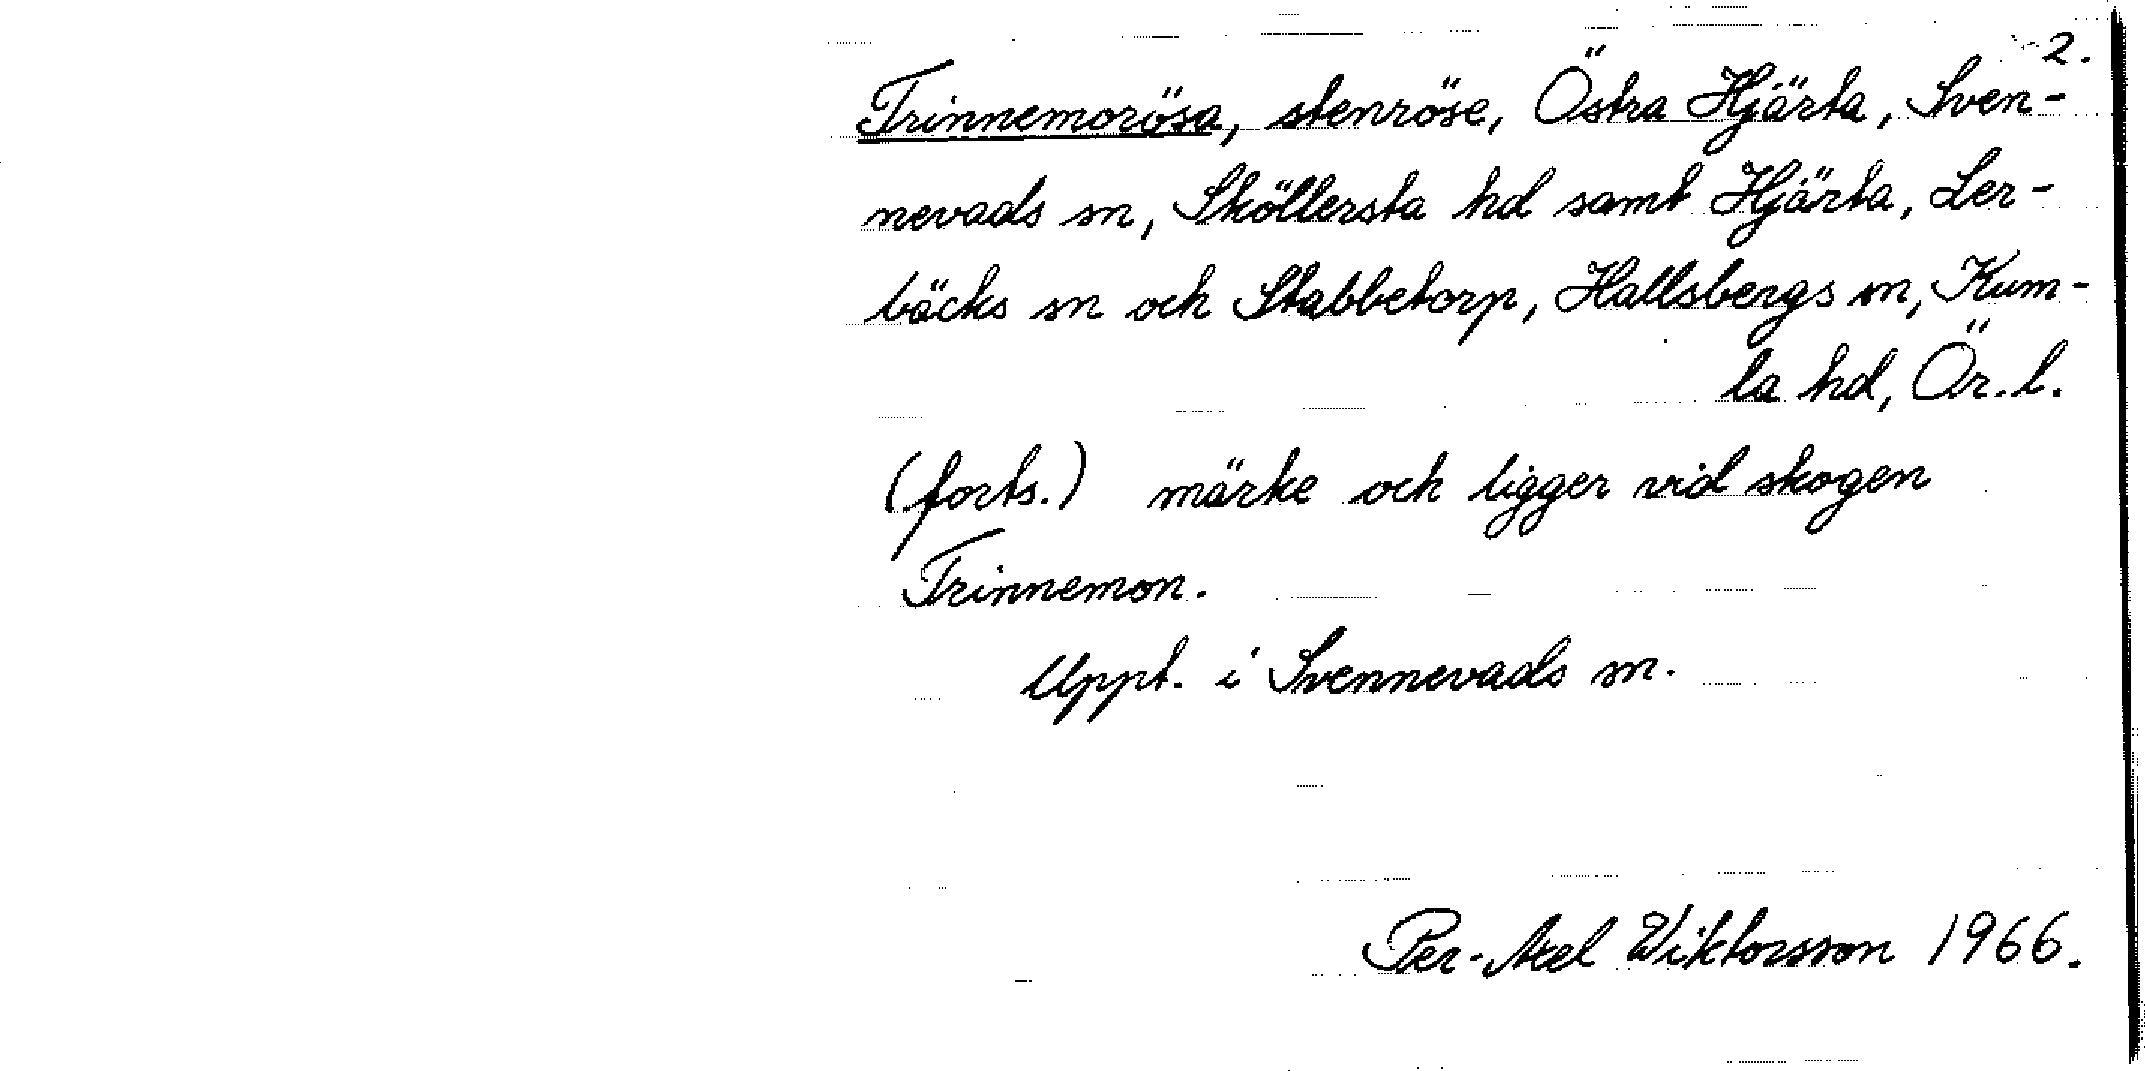 2.
Trinnemorösa, stenröse, Östra Hjärta, Sven-
nevads sn, Sköllersta hd samt Hjärta, Ler-
bäcks sn och Stabbetorp, Hallsbergs sn, Kum-
la hd, Ör. l.
(forts.) märke och ligger vid skogen
Trinnemon.
Uppt. i Svennevads sn.
Per-Axel Wiktorsson 1966.